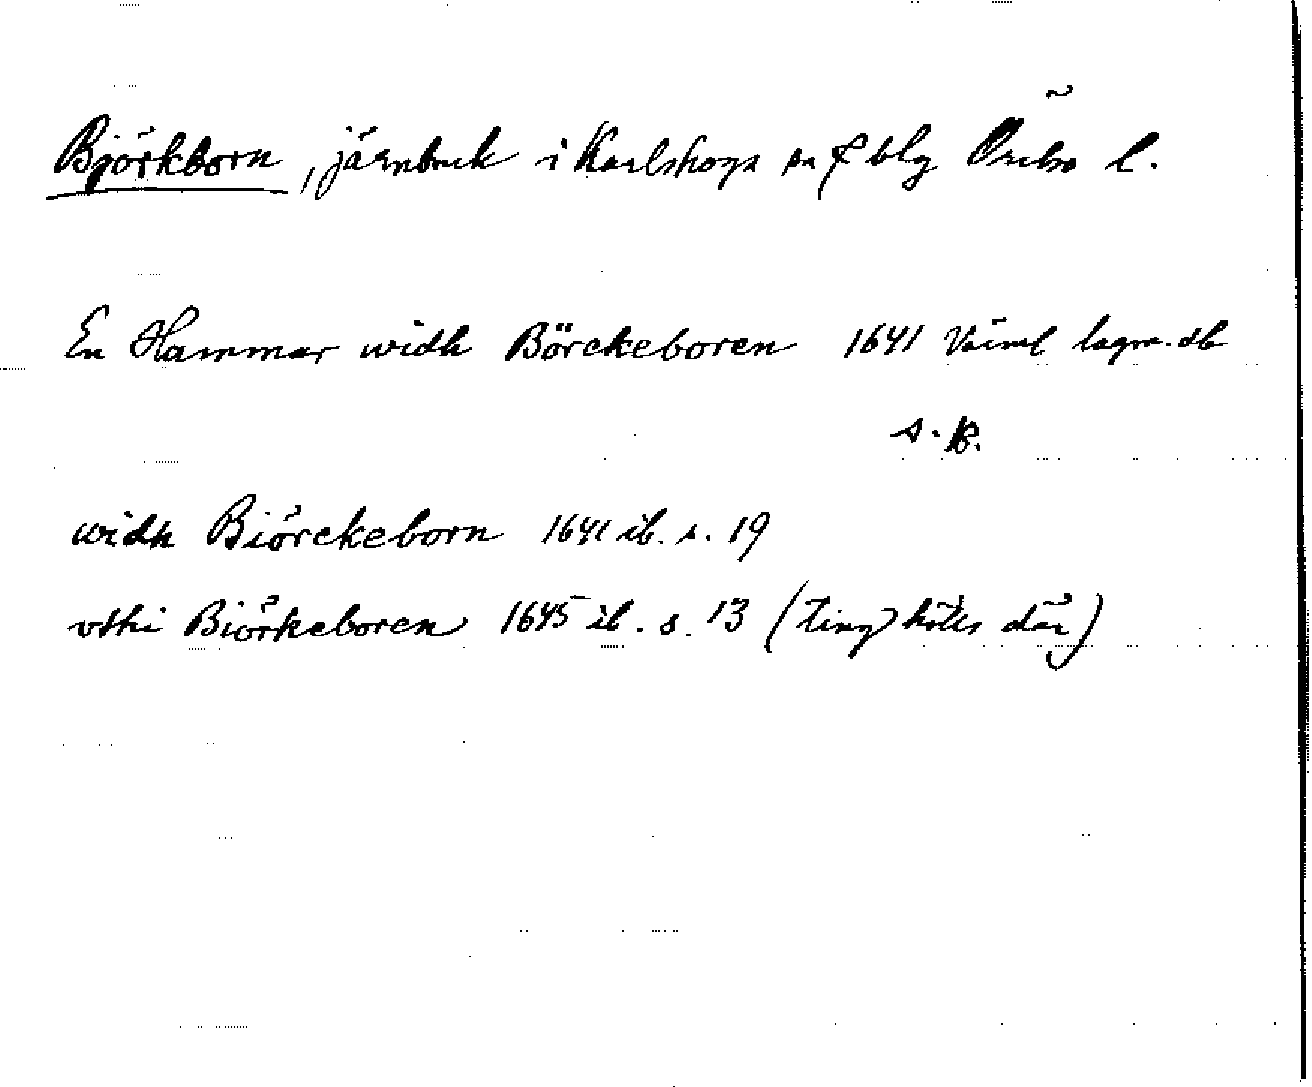 Björkborn, järnbruk i Karlskoga sn & blg Örebro l.
En Hammar widh Börckeboren 1641 Värml lagm. db
s. 18.
widh Biörckeborn 1641 ib. s. 19
vthi Biörkeboren 1645 ib. s. 13 (ting hölls där)